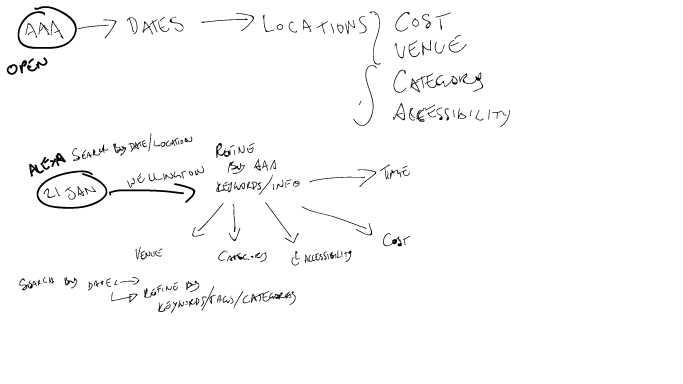 AAA DATES LOCATIONS COST
VENUE
OPEN
CATEGORY
ACCESSIBILITY
ALEXA SEARCH BY DATE/LOCATION
21 JAN WELLINGTON
REFINE
BY AAA
KEYWORDS/INFO
TIME
VENUE CATEGORY ACCESSIBILITY COST
SEARCH BY DATE
REFINE BY
KEYWORDS/TAGS/CATEGORIES